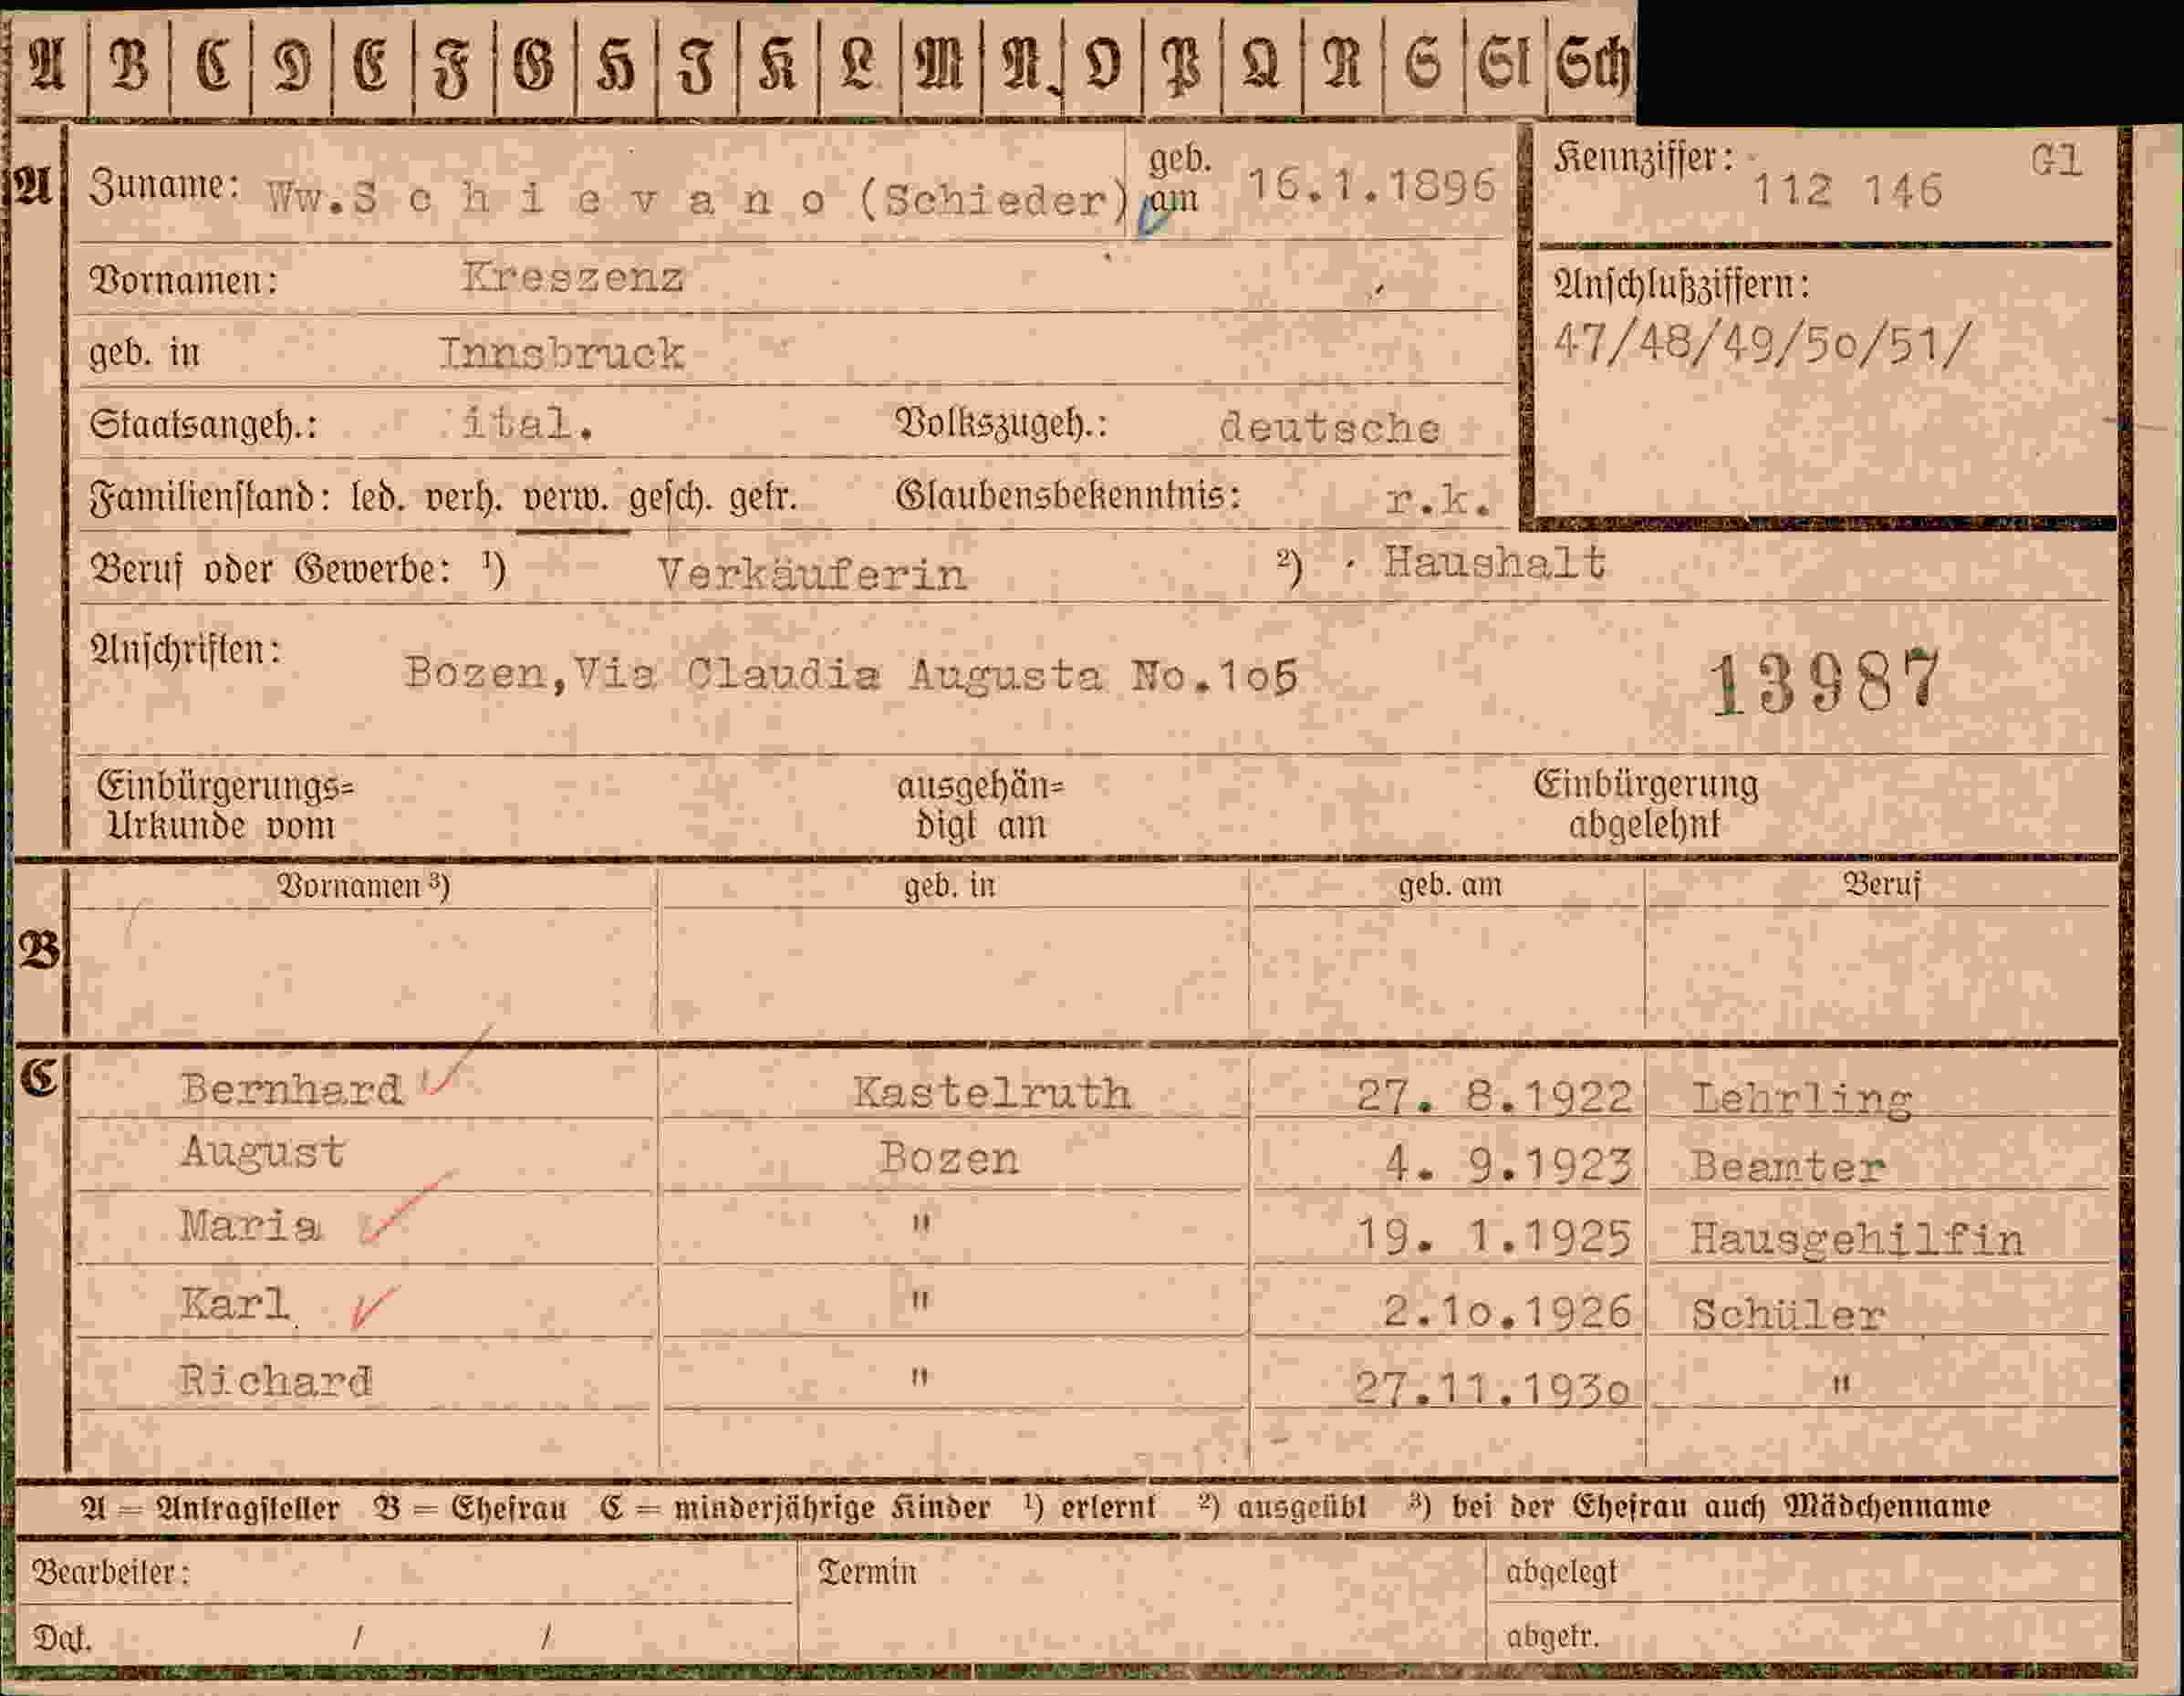 A B C D E F G H I K L M N O P Q R S St Sch
A Zuname: Ww.S c h i e v a n o (Schieder) geb. am 16.1.1896 Kennziffer: 112 146 Gl
Vornamen: Kreszenz
Anschlußziffern:
47/48/49/50/51/
geb. in Innsbruck
Staatsangeh.: ital. Volkszugeh.: deutsche
Familienstand: led. verh. verw. gesch. getr. Glaubensbekenntnis: r.k.
Beruf oder Gewerbe: ¹) Verkäuferin ²) Haushalt
Anschriften: Bozen,Via Claudia Augusta No.1o5 13987
Einbürgerungs= ausgehän= Einbürgerung
Urkunde vom digt am abgelehnt
Vornamen ³) geb. in geb. am Beruf
B
C Bernhard Kastelruth 27. 8.1922 Lehrling
August Bozen 4. 9.1923 Beamter
Maria " 19. 1.1925 Hausgehilfin
Karl " 2.1o.1926 Schüler
Richard " 27.11.193o "
A = Antragsteller B = Ehefrau C = minderjährige Kinder ¹) erlernt ²) ausgeübt ³) bei der Ehefrau auch Mädchenname
Bearbeiter: Termin abgelegt
Dat. / / abgetr.